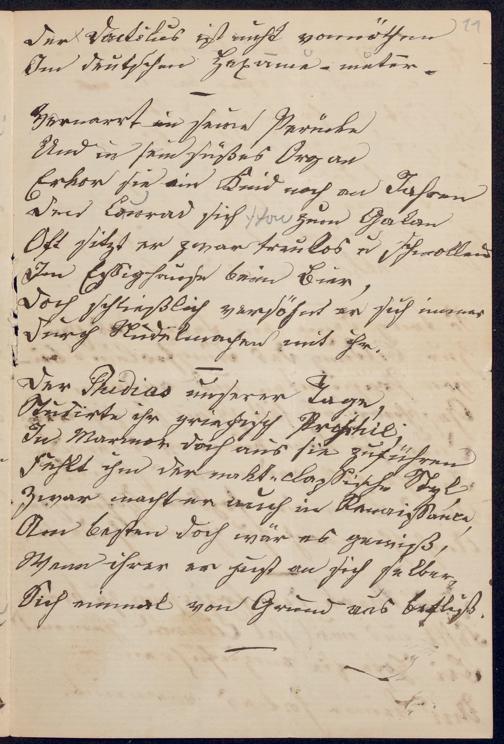 11
Der Dactilus ist nicht vonnöthen
Im deutschen Hexame-meter.
Vernarrt in seine Perücke
Und in sein süßes Organ
Erkor sie ein Kind noch an Jahren
Den Conrad sich zum Galan
Oft sitzt er zwar treulos u schmollend
Im Essighause beim Bier,
Doch schließlich versöhnt er sich immer
Durch Nudelmachen mit ihr.
Der Phidias unserer Tage,
Studirte ihr griechisch Prophil;
In Marmor doch aus sie zuführen
Fehlt ihm der nakt-classische Styl
Zwar macht er auch in Renaissance,
Am besten doch wär es gewiß,
Wenn ihrer er just an sich selber,
Sich einmal von Grund aus befliß.